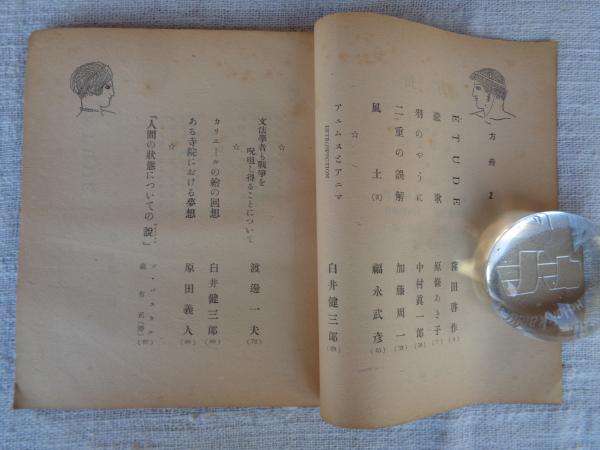 方舟 2
ÉTUDE 窪田啓作 (4)
歌 原條あき子 (7)
羽のやうに 中村眞一郎
二重の誤解 加藤周一
風土 福永武彦
☆
アニムスとアニマ 白井健三郎
INTRODUCTION
文法學者も戰爭を
呪咀し得ることについて 渡邊一夫 (72)
☆
カリエールの繪の回想 白井健三郎
ある寺院における夢想 原田義人
☆
「人間の狀態についての說」 ブ・パスカル